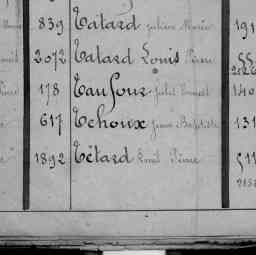 839 Tatard Julien Marie 191
2072 Tatard Louis Pierre 55
178 Taufour Jules Ernest 140
617 Tehoux Jean Baptiste 131
1892 Tétard Louis Pierre 511